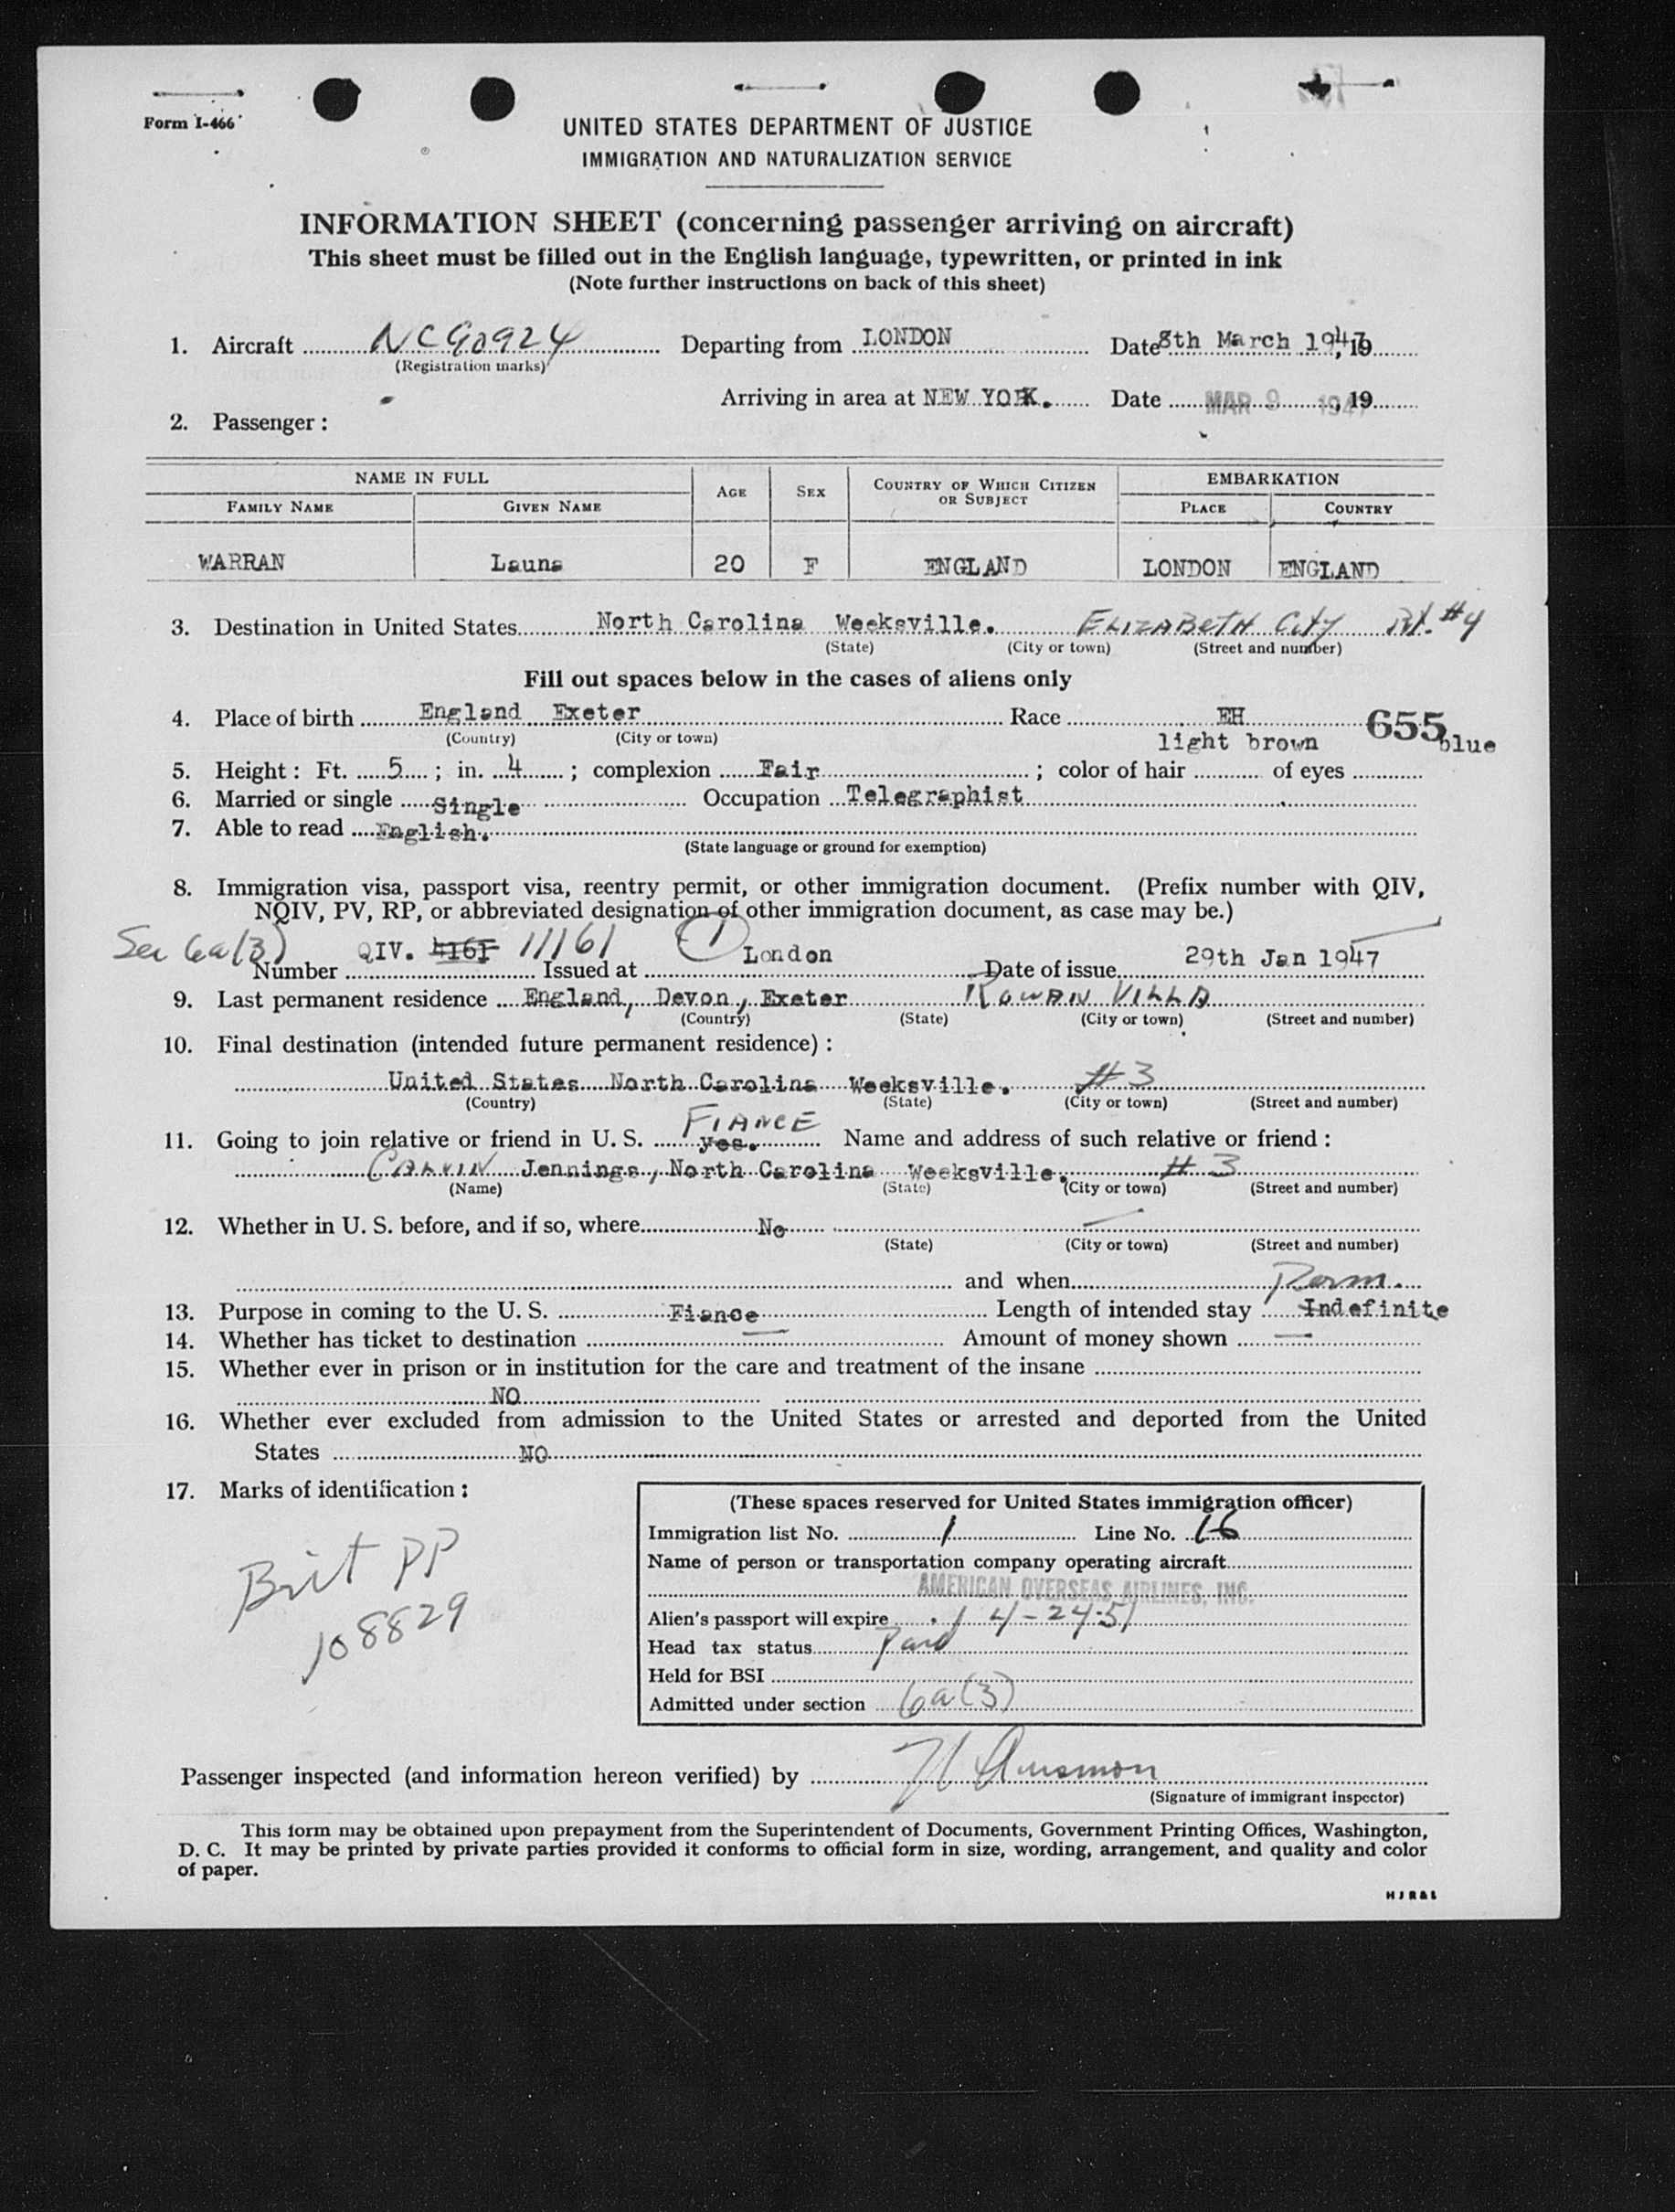 Form I-466
UNITED STATES DEPARTMENT OF JUSTICE
IMMIGRATION AND NATURALIZATION SERVICE
INFORMATION SHEET (concerning passenger arriving on aircraft)
This sheet must be filled out in the English language, typewritten, or printed in ink
(Note further instructions on back of this sheet)
1. Aircraft NC90924 Departing from LONDON Date 8th March 1947, 19
(Registration marks)
Arriving in area at NEW YORK. Date MAR 9 1947, 19
2. Passenger:
NAME IN FULL AGE SEX COUNTRY OF WHICH CITIZEN OR SUBJECT EMBARKATION
FAMILY NAME GIVEN NAME PLACE COUNTRY
WARRAN Launa 20 F ENGLAND LONDON ENGLAND
3. Destination in United States North Carolina Weeksville. ELIZABETH City Rt. #4
(State) (City or town) (Street and number)
Fill out spaces below in the cases of aliens only
4. Place of birth England Exeter Race EH 655
(Country) (City or town) light brown blue
5. Height: Ft. 5; in. 4; complexion Fair; color of hair of eyes
6. Married or single Single Occupation Telegraphist
7. Able to read English.
(State language or ground for exemption)
8. Immigration visa, passport visa, reentry permit, or other immigration document. (Prefix number with QIV,
NQIV, PV, RP, or abbreviated designation of other immigration document, as case may be.)
Sec 6a(3) Number QIV. 4161 11161 Issued at 1 London Date of issue 29th Jan 1947
9. Last permanent residence England, Devon, Exeter ROWAN VILLA
(Country) (State) (City or town) (Street and number)
10. Final destination (intended future permanent residence):
United States North Carolina Weeksville. #3
(Country) (State) (City or town) (Street and number)
FIANCE
11. Going to join relative or friend in U. S. yes. Name and address of such relative or friend:
CALVIN Jennings, North Carolina Weeksville. #3
(Name) (State) (City or town) (Street and number)
12. Whether in U. S. before, and if so, where No
(State) (City or town) (Street and number)
and when Perm.
13. Purpose in coming to the U. S. Fiance Length of intended stay Indefinite
14. Whether has ticket to destination Amount of money shown
15. Whether ever in prison or in institution for the care and treatment of the insane
NO
16. Whether ever excluded from admission to the United States or arrested and deported from the United
States NO
17. Marks of identification:
Brit PP
108829
(These spaces reserved for United States immigration officer)
Immigration list No. 1 Line No. 16
Name of person or transportation company operating aircraft
AMERICAN OVERSEAS AIRLINES, INC.
Alien's passport will expire 4-24-51
Head tax status Paid
Held for BSI
Admitted under section 6a(3)
Passenger inspected (and information hereon verified) by
(Signature of immigrant inspector)
This form may be obtained upon prepayment from the Superintendent of Documents, Government Printing Offices, Washington,
D. C. It may be printed by private parties provided it conforms to official form in size, wording, arrangement, and quality and color
of paper.
HJR&L